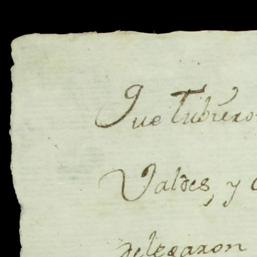 Que tubiero
Valdes, y
delegaron